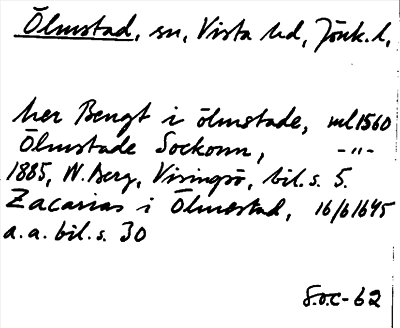 Ölmstad, sn, Vista hd, Jönk. l,
her Bengt i ölmstade, ml 1560
Ölmstade Sockonn, -"-
1885, W. Berg, Visingsö, bil. s. 5.
Zacarias i Ölmestad, 16/6 1645
a. a. bil. s. 30
S.O.C-62